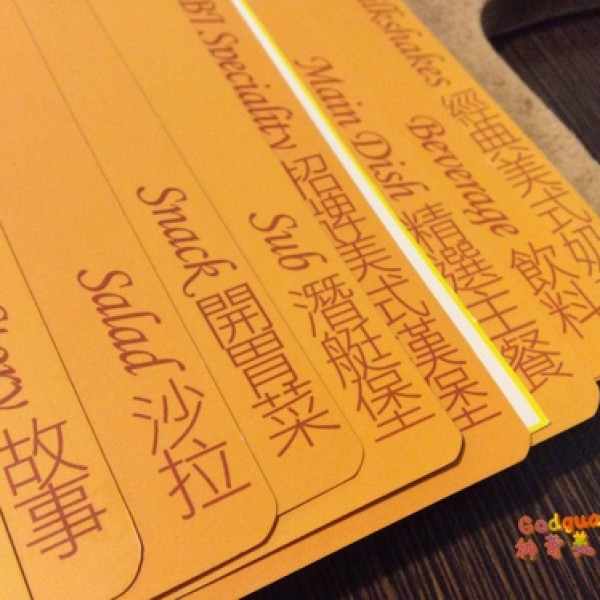 Story 故事
Salad 沙拉
Snack 開胃菜
Sub 潛艇堡
BJ. Speciality 招牌美式漢堡
Main Dish 精選主餐
Beverage 飲料
Milkshakes 經典美式奶
Godgua